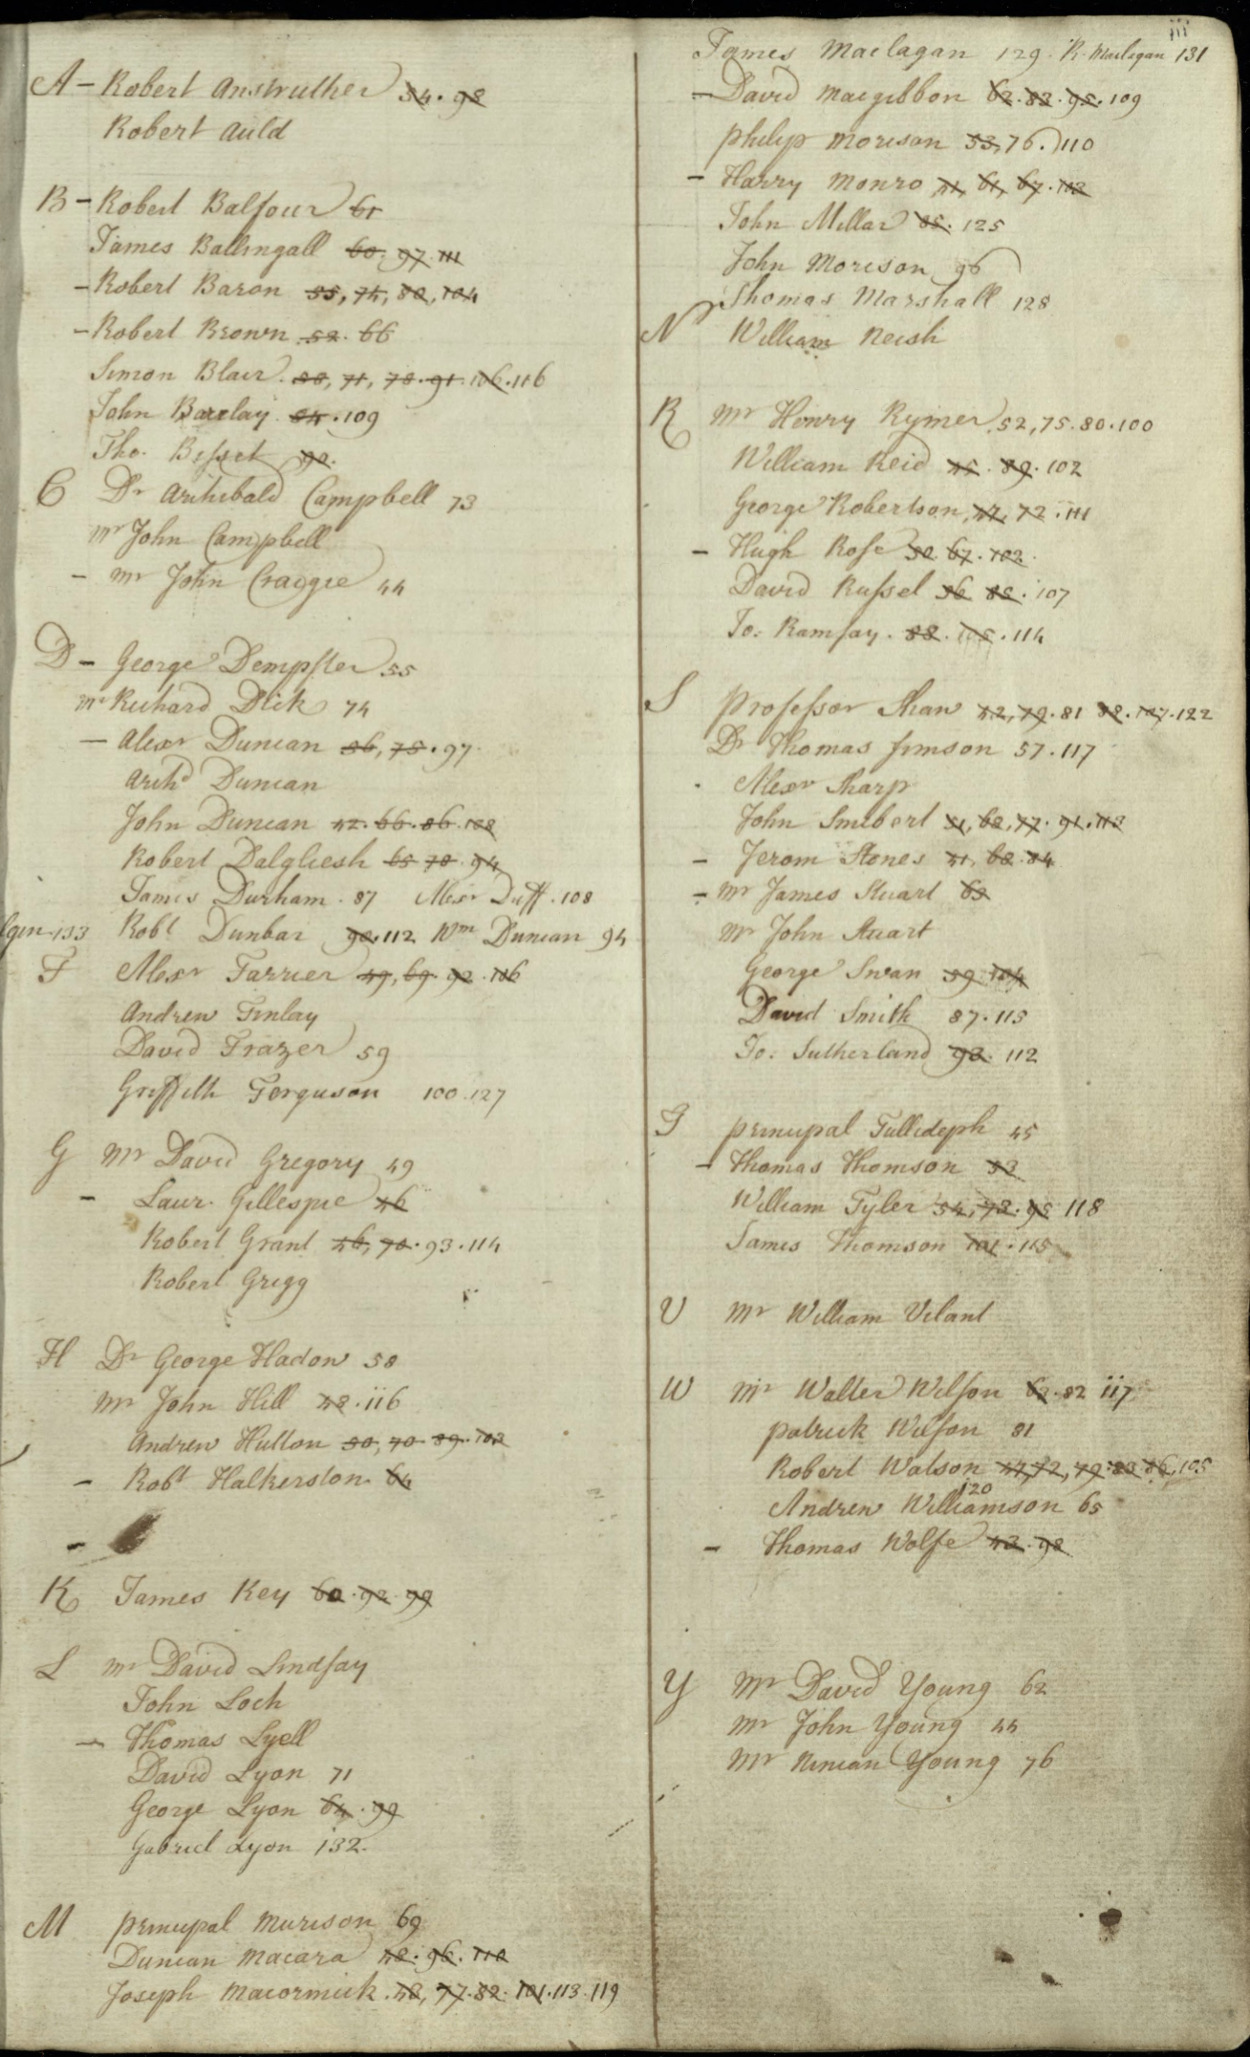 A - Robert Anstruther 54. 98
Robert Auld
B - Robert Balfour 61
James Ballingall 60. 97. 111
- Robert Baron 55, 74, 80, 104
- Robert Brown 52. 66
Simon Blair 71, 78. 91. 106. 116
John Barclay 84. 109
Tho. Bisset 90.
C Dr Archibald Campbell 73
Mr John Campbell
- Mr John Craigie 44
D - George Dempster 55
Mr Richard Dick 74
- Alexr Duncan 56, 75. 97
Archd Duncan
John Duncan 42. 66. 86. 108
Robert Dalgliesh 65 70. 94
James Durham. 87 Alexr Duff. 108
133 Robt Dunbar 90. 112 Wm Duncan 94
F Alexr Farrier 49, 69. 92. 106
Andrew Finlay
David Frazer 59
Griffith Ferguson 100. 127
G Mr David Gregory 49
- Laur. Gillespie 46
Robert Grant 46, 70. 93. 114
Robert Grigg
H Dr George Hadow 58
Mr John Hill 48. 116
Andrew Hutton 50, 70 89. 103
- Robt Halkerston 64
-
K James Key 60. 92. 99
L Mr David Lindsay
John Loch
- Thomas Lyell
David Lyon 71
George Lyon 64. 99
Gabriel Lyon 132.
M Principal Murison 69
Duncan Macara 48. 96. 110
Joseph Macormick. 48, 77. 82. 101. 113. 119
iii
James Maclagan 129. R. Maclagan 131
- David Macgibbon 62. 82. 95. 109
Philip Morison 53, 76. 110
- Harry Monro 41, 61, 67. 112
John Millar 85. 125
John Morison 96
Thomas Marshall 128
N William Neish
R Mr Henry Rymer 52, 75. 80. 100
William Reid 45. 89. 102
George Robertson, 47, 72. 111
- Hugh Rose 50. 67. 102.
David Russel 56 88. 107
Jo: Ramsay. 88. 105. 114
S Professor Shaw 42, 79. 81 88. 107. 122
Dr Thomas Simson 57. 117
Alexr Sharp
John Smibert 51, 68, 77. 91. 113
- Jerom Stones 41, 68. 84
- Mr James Stuart 63
Mr John Stuart
George Swan 59. 104
David Smith 87. 115
Jo: Sutherland 93. 112
T Principal Tullideph 45
- Thomas Thomson 53
William Tyler 54, 73. 95 118
James Thomson 101. 115
V Mr William Vilant
W Mr Walter Wilson 63. 82 117
Patrick Wilson 81
Robert Watson 47, 72, 79. 83 86, 105
120
Andrew Williamson 65
- Thomas Wolfe 43. 98
Y Mr David Young 62
Mr John Young 44
Mr Ninian Young 76